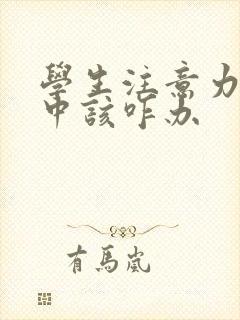 學生注意力
中該咋办
有馬嵐